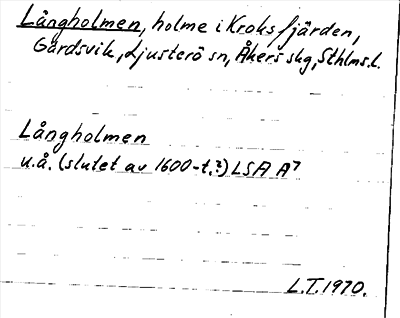 Långholmen, holme i Kroksfjärden,
Gärdsvik, Ljusterö sn, Åkers skg, Sthlms l.
Långholmen
u.å. (slutet av 1600-t.?) LSA A7
L.T. 1970.